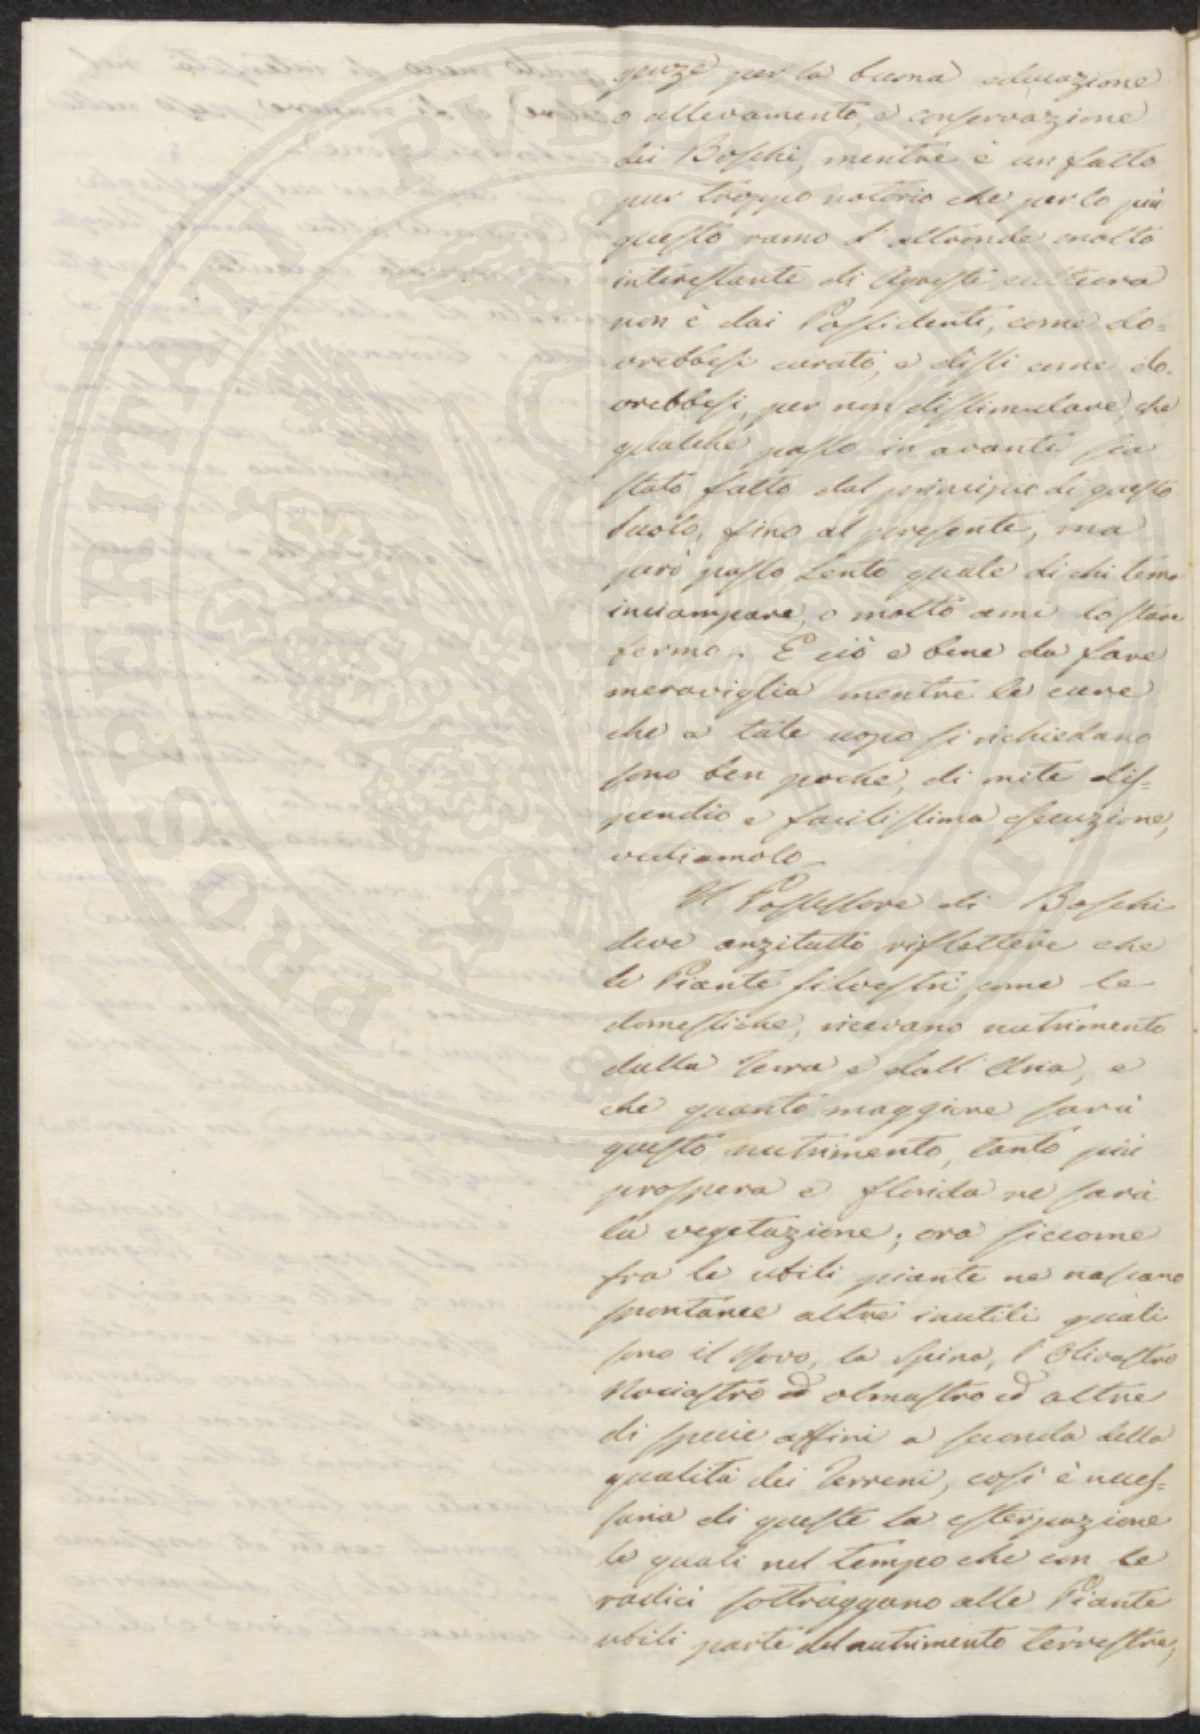 genze per la buona educazione
o allevamento, e conservazione
dei Boschi, mentre è un fatto
pur troppo notorio che per lo più
questo ramo d'altronde molto
interessante di Agreste cultura
non è dai Possidenti, come do=
vrebbesi curato, e dissi come do=
vrebbesi, per non dissimulare che
qualche passo in avanti sia
stato fatto dal principio di questo
Secolo, fino al presente, ma
però passo Lento quale di chi teme
inciampare, o molto ami lo stare
fermo. E ciò è bene da fare
meraviglia mentre le cure
che a tale uopo si richiedano
sono ben poche, di mite dis=
pendio e facilissima esecuzione,
vediamolo.
Il Possessore di Boschi
deve anzitutto riflettere che
le Piante silvestri, come le
domestiche, ricevano nutrimento
dalla Terra e dall'Aria, e
che quanto maggiore sarà
questo nutrimento, tanto più
prospera e florida ne sarà
la vegetazione; ora siccome
fra le utili piante ne nascano
spontanee altre inutili quali
sono il Rovo, la Spina, l'Olivastro
Nociastro ed olmastro ed altre
di specie affini a seconda della
qualità dei Terreni, così è neces=
saria di queste la esterpazione
le quali nel tempo che con le
radici sottraggano alle Piante
utili parte del nutrimento terrestre,
PROSPERITATI PUBLICAE AUGENDAE